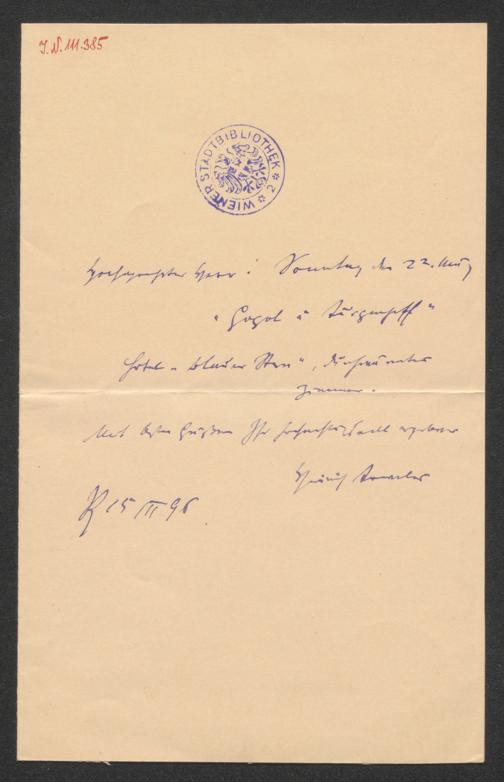 J.N. 111.385
WIENER STADTBIBLIOTHEK
2
Hochgeehrter Herr! Sonntag den 22. März
"Gogol u Turgenjeff"
Hotel "blauer Stern",
Zimmer.
Mit besten Grüßen Ihr hochachtungsvoll ergebener
Heinrich
P 15 III 96